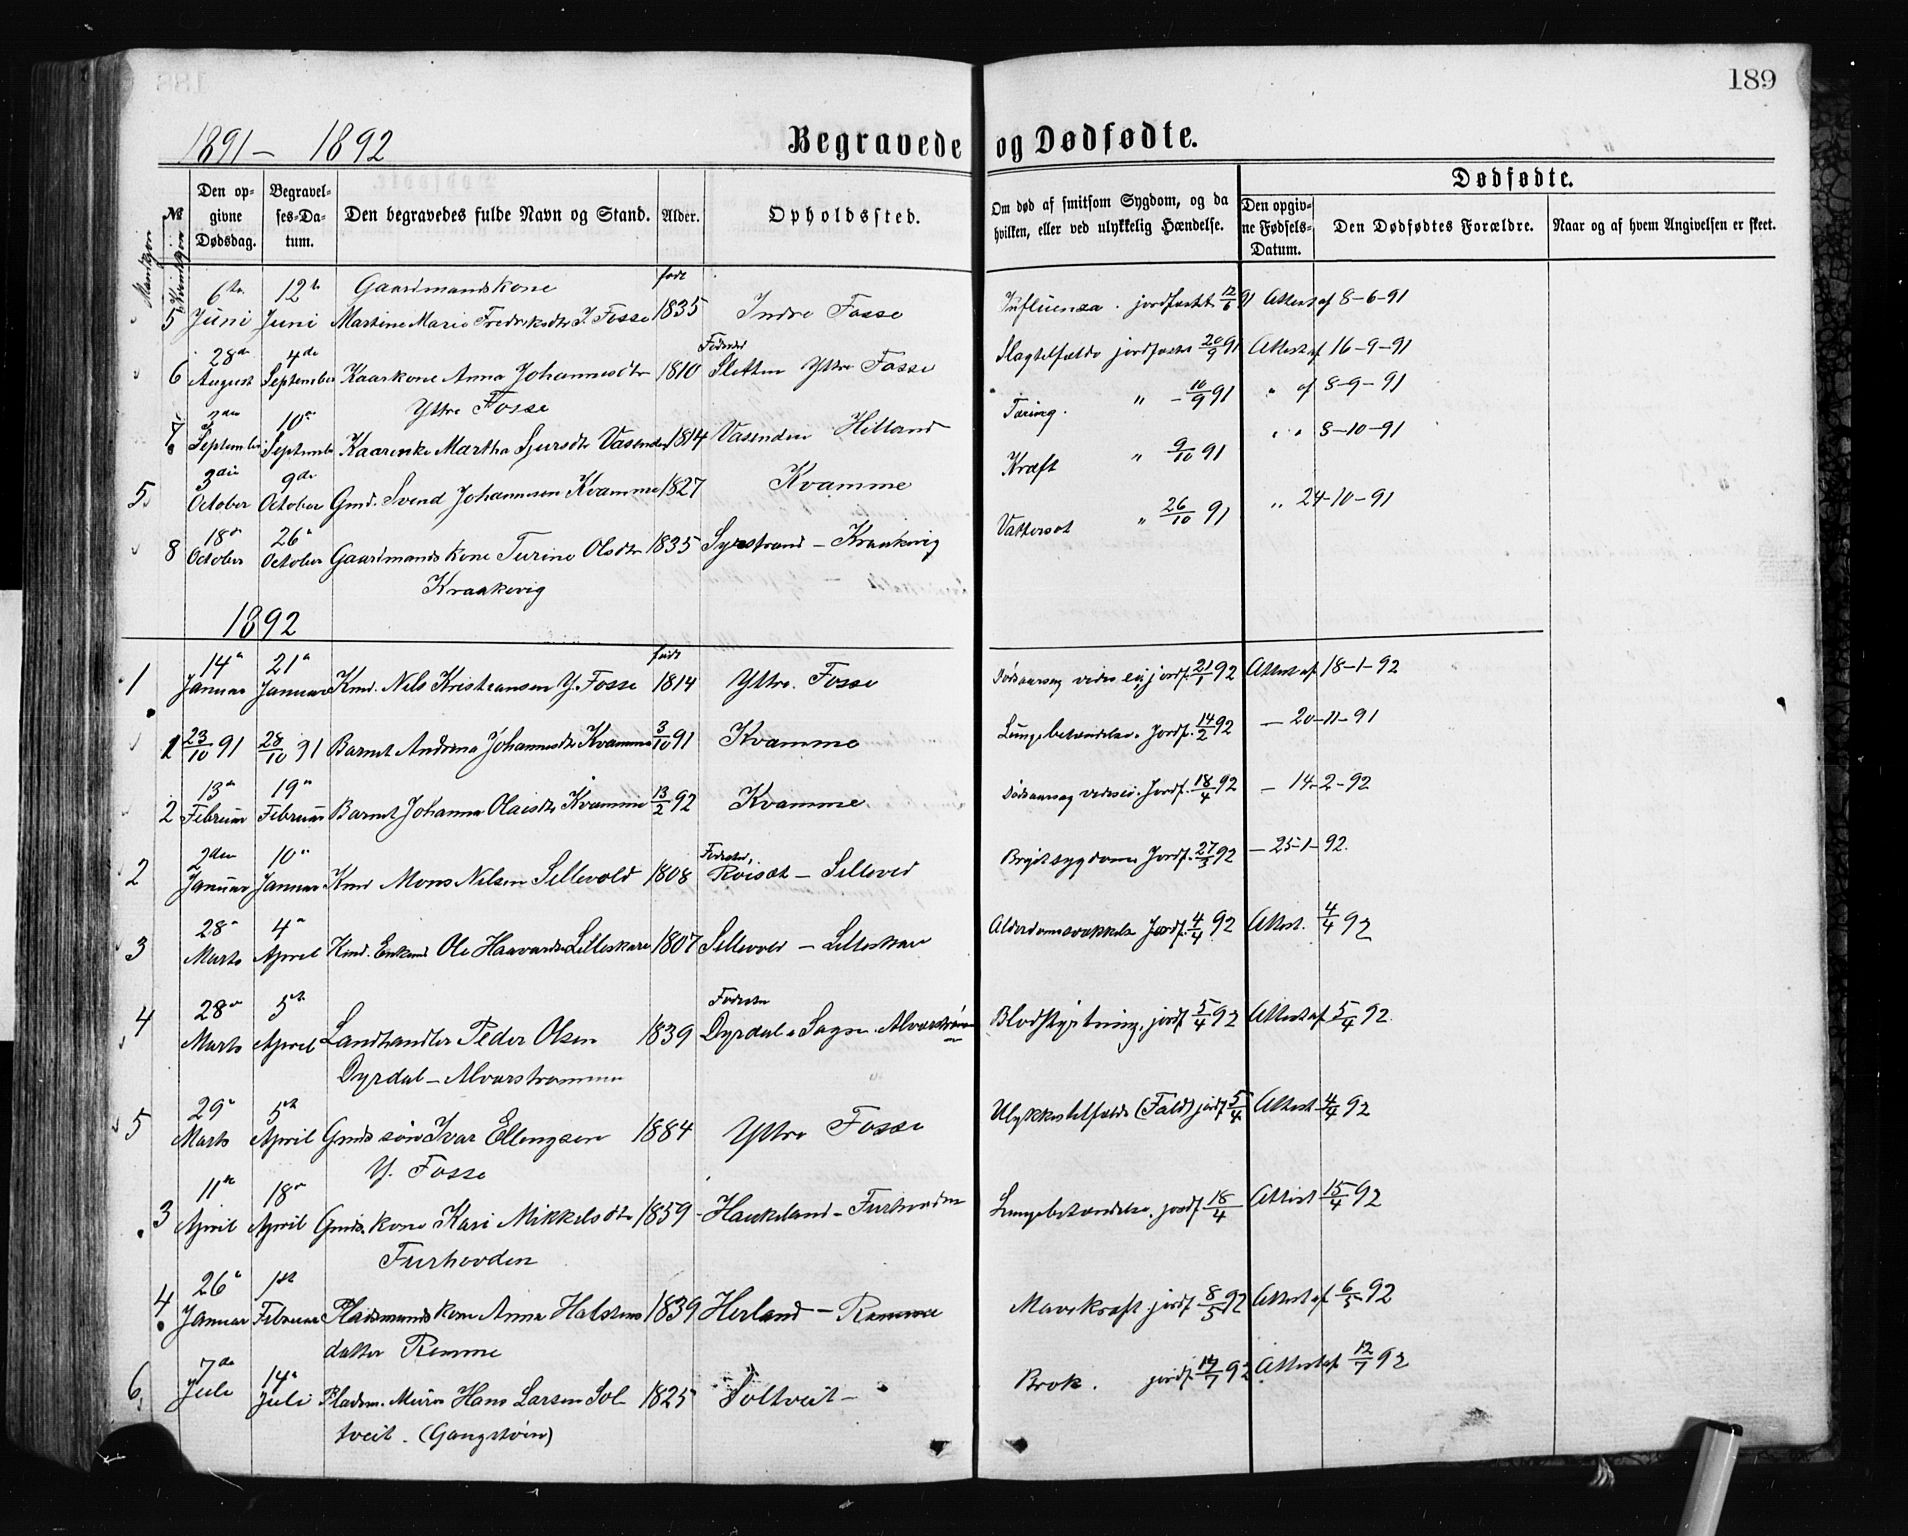 189
1891 – 1892
Begravede og Dødfødte.
Mandkjøn
No
Kvindekjøn
Den op-
givne
Dødsdag.
Begravel-
ses-Da-
tum.
Den begravedes fulde Navn og Stand.
Alder.
Opholdssted.
Om død af smitsom Sygdom, og da
hvilken, eller ved ulykkelig Hændelse.
Dødfødte.
Den opgiv-
ne Fødsels-
Datum.
Den Dødfødtes Forældre.
Naar og af hvem Angivelsen er skeet.
6te 12te Gaardmandskone født
5 Juni Juni Martine Marie Fredriksdtr I. Fosse 1835 Indre Fosse Influenza . jordfæstet 12/6 91 Attest af 8-6-91
28de 4de Fødested
6 August September Kaarkone Anna Johannesdtr 1810 Sletten Yttre Fosse Slagtilfælde jordfæstet 20/9 91 Attest af 16-9-91
Yttre Fosse
3die 10de
7 September September Kaarenke Martha Sjursdtr Vasenden 1814 Vasenden Hilland Tæring. " - 10/9 91 " af 8-9-91
3die 9de
5 October October Gmd. Svend Johannesen Kvamme 1827 Kvamme Kræft " 9/10 91 " " 8-10-91
18de 26de
8 October October Gaardmandskone Turine Olsdtr 1835 Syrstrand – Kraakevig Vattersot " 26/10 91 " 24-10-91
Kraakevig
1892
14de 21de født
1 Januar Januar Kmd. Nils Kristiansen Y. Fosse 1814 Yttre Fosse Dødsaarsag vides ei, jordf. 21/1 92 Attest af 18-1-92
1 23/10 91 28/10 91 Barnet Andrina Johannesdtr Kvamme 3/10 91 Kvamme Lungebetændelse. Jordf. 14/2 92 – 20-11-91
13de 19de
2 Februar Februar Barnet Johanna Olaisdtr Kvamme 13/2 92 Kvamme Dødsaarsag vides ei. Jordf. 18/4 92 – 14-2-92
2den 10de Fødested,
2 Januar Januar Kmd Mons Nilsen Sellevold 1808 Roisæt – Sellevold Brystsygdom Jordf. 27/3 92 – 25-1-92.
28de 4de
3 Marts April Kmd. Enkmd Ole Haavardsen Lilleskare 1807 Sellevold – Lilleskare Alderdomssvækkelse Jordf. 4/4 92 Attest. 4/4 92
28de 5te Fødested
4 Marts April Landhandler Peder Olsen 1839 Dyrdal i Sogn Alverstrømmen Blodstyrtning, jordf. 5/4 92 Attest af 5/4 92.
Dyrdal – Alverstrømmen
29de 5te
5 Marts April Gmds søn Ivar Ellingsen 1884 Yttre Fosse Ulykkestilfælde (Fald) jordf 5/4 Attest 4/4 92
Y. Fosse
11te 18de
3 April April Gmds. kone Kari Mikkelsdtr 1859 Haukeland – Furhovden Lungebetændelse. jordf 18/4 Attest 15/4 92
Furhovden
26de 1ste
4 Januar Februar Pladsmandskone Anna Halstens 1839 Herland – Remme Mavekræft jordf. 8/5 92 Attest af 6/5 92
datter Remme
7de 14de
6 Juli Juli Pladsm. Murer Hans Larsen Sol- 1825 Soltveit – Brok. jordf. 14/7 92 Attest af 12/7 92
tveit. (Gangstøin)